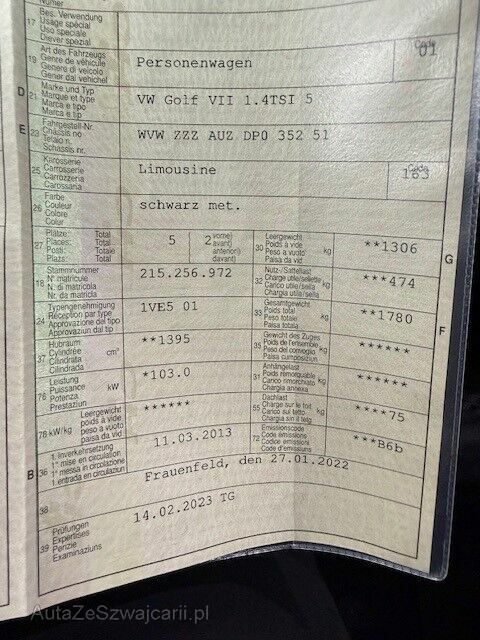 Numer
17 Bes. Verwendung
Usage spécial
Uso speciale
Diever spezial
19 Art des Fahrzeugs
Genre de véhicule
Genere di veicolo
Gener dal vehichel
Personenwagen
Code
01
D 21 Marke und Typ
Marque et type
Marca e tipo
Marca e tip
VW Golf VII 1.4TSI 5
E 23 Fahrgestell-Nr.
Châssis no
Telaio n.
Schassis nr.
WVW ZZZ AUZ DP0 352 51
25 Karosserie
Carrosserie
Carrozzeria
Carossaria
Limousine
Code
163
26 Farbe
Couleur
Colore
Colur
schwarz met.
27 Plätze: Total
Places: Total
Posti: Totale
Plazs: Total
5
2 vorne)
avant)
anteriori)
davant)
30 Leergewicht
Poids à vide
Peso a vuoto
Paisa da vid
kg
**1306
G
18 Stammnummer
N° matricule
N. di matricola
Nr. da matricla
215.256.972
32 Nutz-/Sattellast
Charge utile/sellette
Carico utile/sella
Chargia utila/sella
kg
***474
24 Typengenehmigung
Réception par type
Approvazione del tipo
Approvaziun dal tip
1VE5 01
33 Gesamtgewicht
Poids total
Peso totale
Paisa totala
kg
**1780
F
37 Hubraum
Cylindrée
Cilindrata
Cilindrada
cm³
**1395
35 Gewicht des Zuges
Poids de l'ensemble
Peso del convoglio
Paisa cumposiziun
kg
******
76 Leistung
Puissance
Potenza
Prestaziun
kW
*103.0
31 Anhängelast
Poids remorquable
Carico rimorchiato
Chargia annexa
kg
******
78 kW/kg Leergewicht
poids à vide
peso a vuoto
paisa da vid
******
55 Dachlast
Charge sur le toit
Carico sul tetto
Chargia sin il tetg
kg
****75
B 36 1. Inverkehrsetzung
1re mise en circulation
1a messa in circolazione
1. entrada en circulaziun
11.03.2013
72 Emissionscode
Code émissions
Codice emissioni
Code d'emissiuns
***B6b
38
Frauenfeld, den 27.01.2022
39 Prüfungen
Expertises
Perizie
Examinaziuns
14.02.2023 TG
AutaZeSzwajcarii.pl